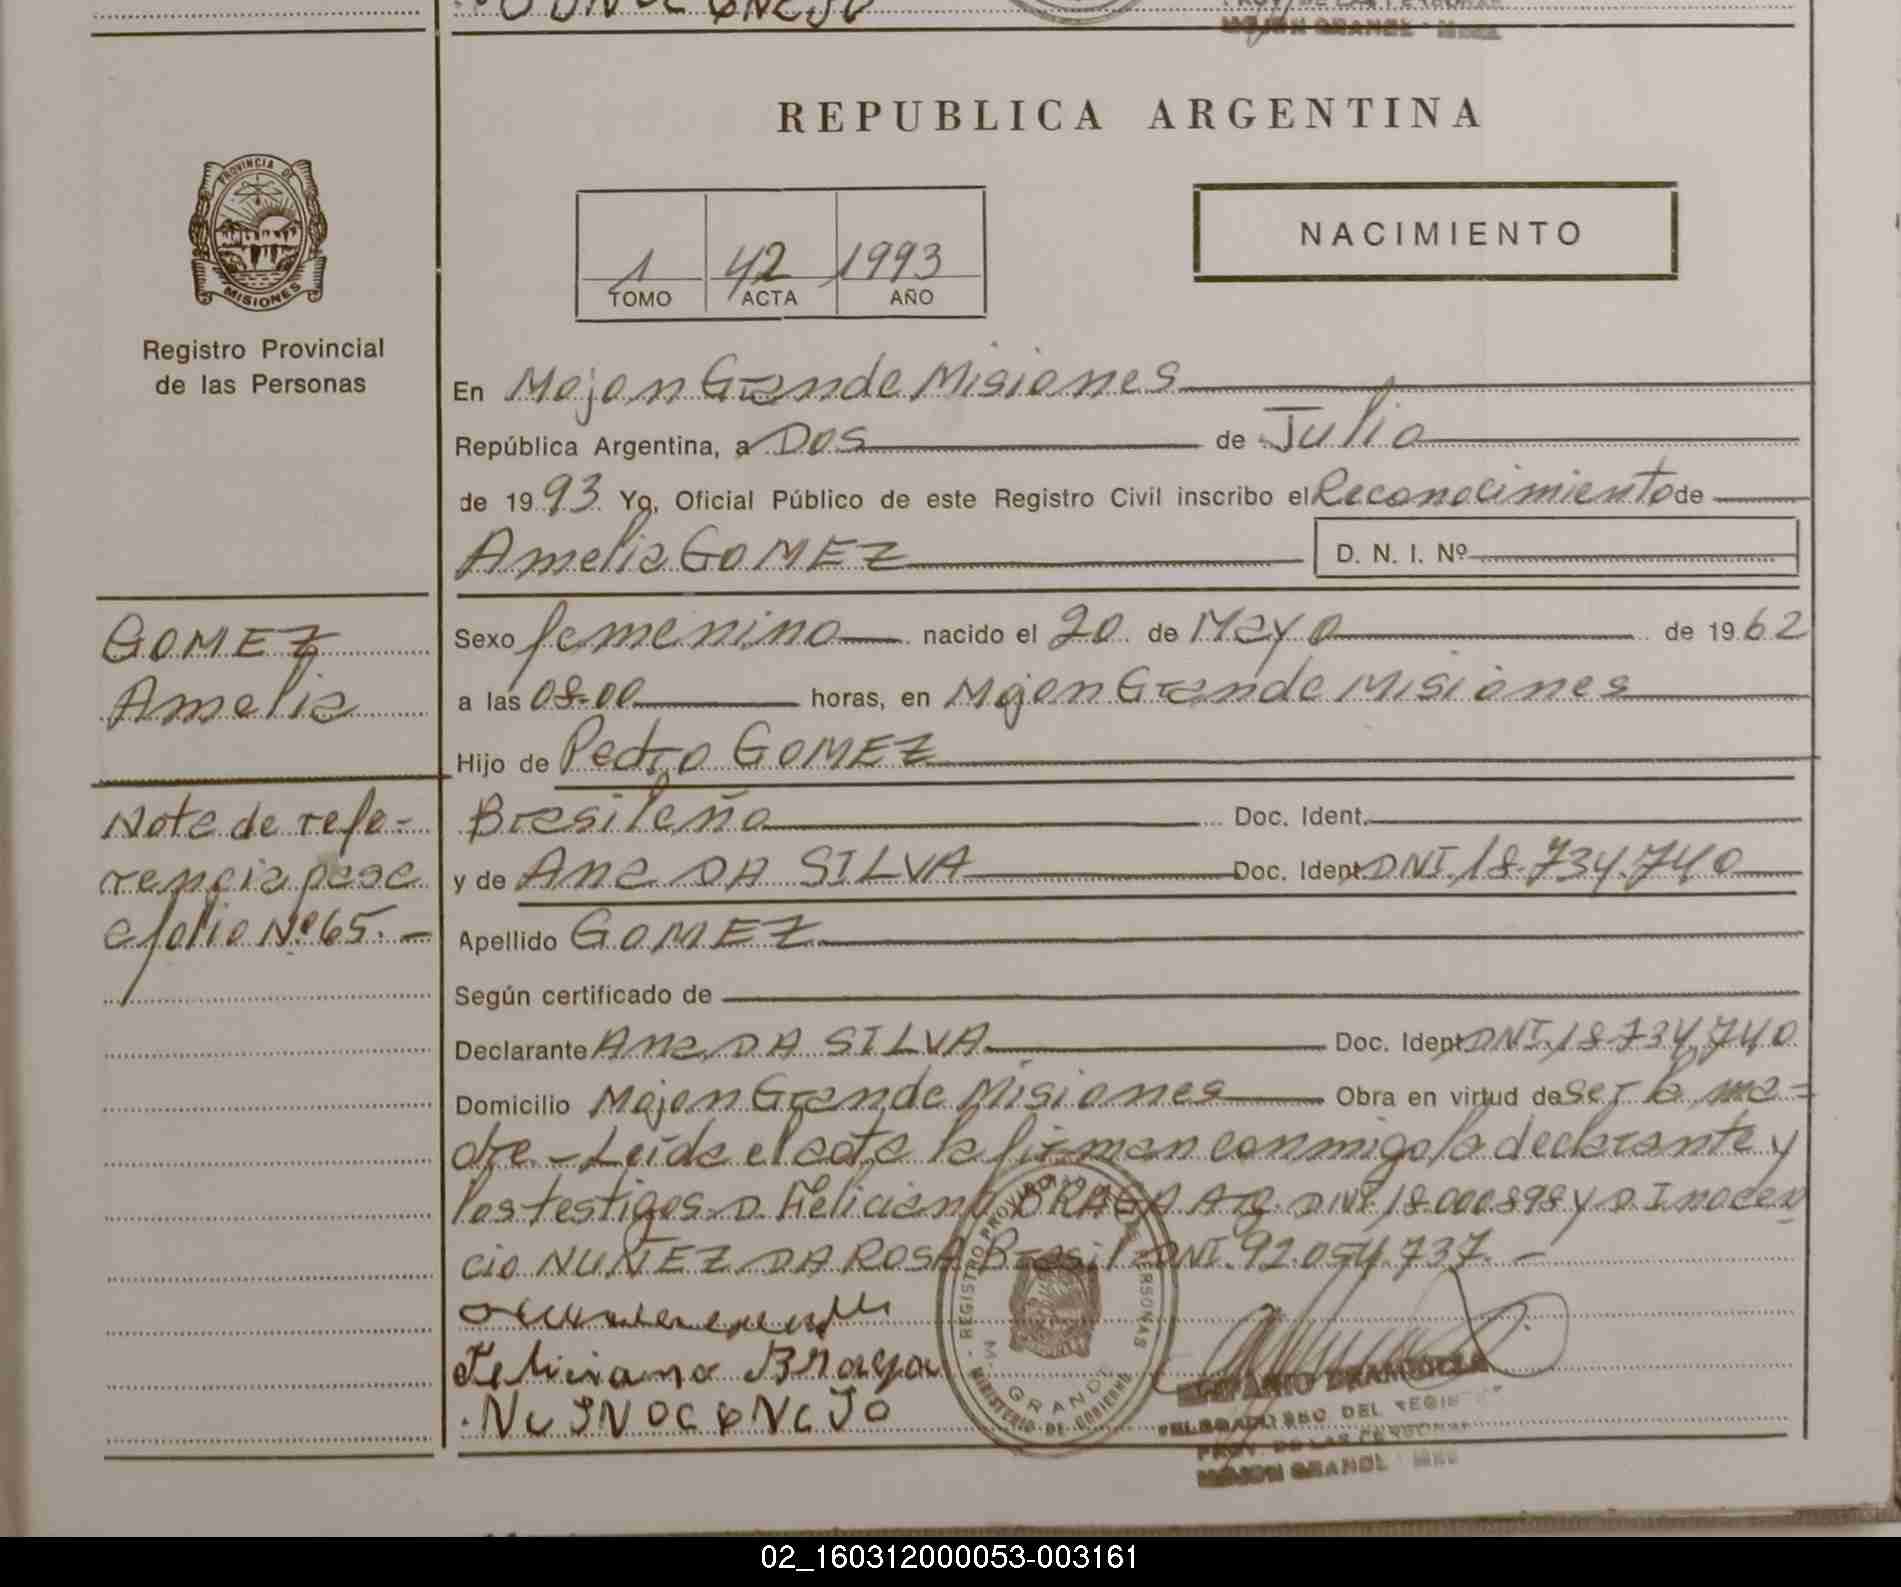 MOJON GRANDE
REPUBLICA ARGENTINA
PROVINCIA DE
MISIONES
Registro Provincial
de las Personas
1 42 1993
TOMO ACTA AÑO
NACIMIENTO
En Mojon Grande Misiones
República Argentina, a Dos de Julio
de 1993 Yo, Oficial Público de este Registro Civil inscribo el Reconocimiento de
Amelia GOMEZ D. N. I. Nº
GOMEZ
Amelia
Sexo femenino nacido el 20 de Mayo de 1962
a las 08-00 horas, en Mojon Grande Misiones
Hijo de Pedro GOMEZ
Nota de refe-
rencia pasa
a folio Nº 65.-
Brasileña Doc. Ident.
y de Ana DA SILVA Doc. Ident. DNI. 18.734.740
Apellido GOMEZ
Según certificado de
Declarante Ana DA SILVA Doc. Ident. DNI. 18.734.740
Domicilio Mojon Grande Misiones Obra en virtud de ser la ma=
dre.- Leida el acta la firman conmigo la declarante y
los testigos D. Feliciano BRAGA Arg. DNI. 18.000898 y D. Inocen
cio NUÑEZ DA ROSA Brasil DNI. 92.054.737.-
Feliciano Braga
REGISTRO PROVINCIAL DE LAS PERSONAS
M. GRANDE
MINISTERIO DE GOBIERNO
DEL REGIS
PROV. DE LAS PERSONAS
MOJON GRANDE
02_160312000053-003161